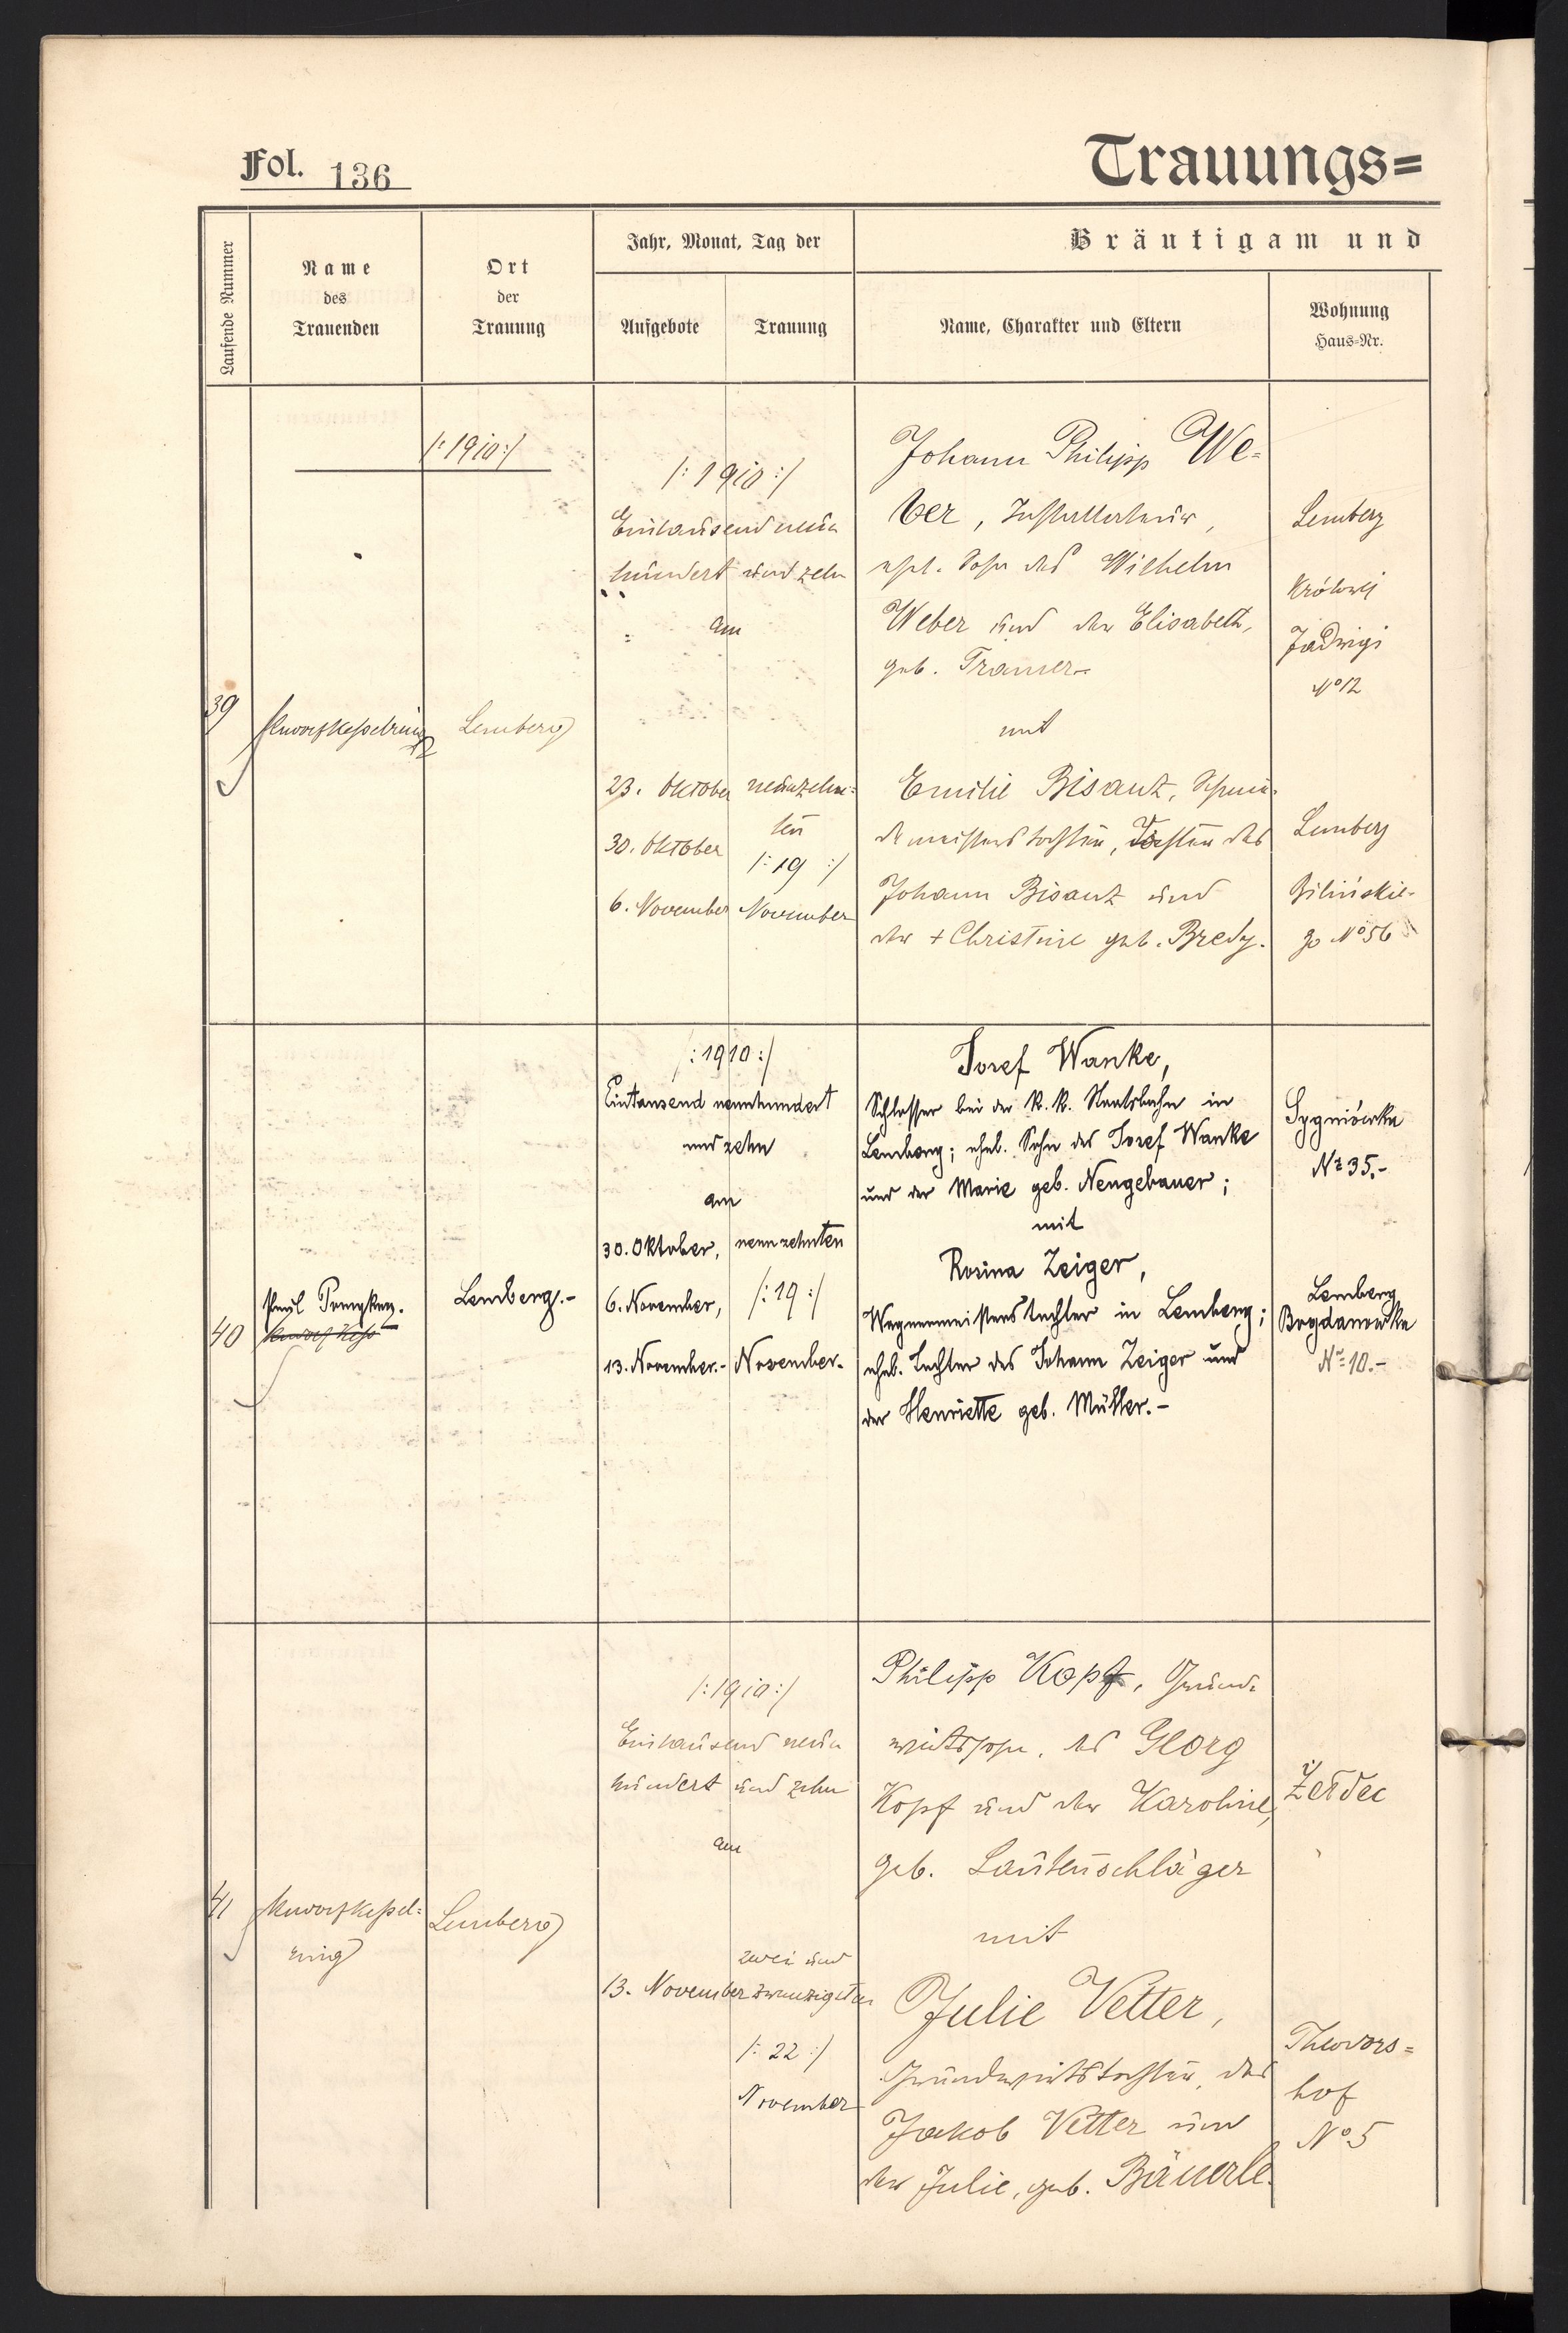 Fol. 136
Trauungs=
Laufende Nummer
Name
des
Trauenden
Ort
der
Trauung
Jahr, Monat, Tag der
Aufgebote
Trauung
Bräutigam und
Name, Charakter und Eltern
Wohnung
Haus-Nr.
/:1910:/
39
Lemberg
/:1910:/
Eintausend neun
hundert und zehn
am
23. Oktober
30. Oktober
6. November
neunzehn=
ten
/:19:/
November
Johann Philipp We=
ber, Installateur,
ehel. Sohn des Wilhelm
Weber und der Elisabeth,
geb. Tramer.-
mit
Emilie Bisanz, Schmie-
demeisterstochter, Tochter des
Johann Bisanz und
der + Christine geb. Bredy.
Lemberg
Królowej
Jadwigi
No 12
Lemberg
Zilińskie-
go No 56
40
Paul
Lemberg.-
/:1910:/
Eintausend neunhundert
und zehn
am
30. Oktober,
6. November,
13. November.-
neunzehnten
/:19:/
November.
Josef Wanke,
Schlosser bei der k. k. Staatsbahn in
Lemberg; ehel. Sohn des Josef Wanke
und der Marie geb. Neugebauer;
mit
Rosina Zeiger,
Wagnermeisterstochter in Lemberg;
ehel. Tochter des Johann Zeiger und
der Henriette geb. Müller.-
Sygniówka
No 35.-
Lemberg
Bogdanowka
No 10.-
41
Lemberg
/:1910:/
Eintausend neun
hundert und zehn
am
13. November
zwei und
zwanzigsten
/:22:/
November
Philipp Kopf, Grund-
wirtssohn, des Georg
Kopf und der Karoline,
geb. Lautenschläger
mit
Julie Vetter,
Grundwirtstochter, des
Jakob Vetter und
der Julie, geb. Bäuerle.
Żełdec
Theodors=
hof
No 5